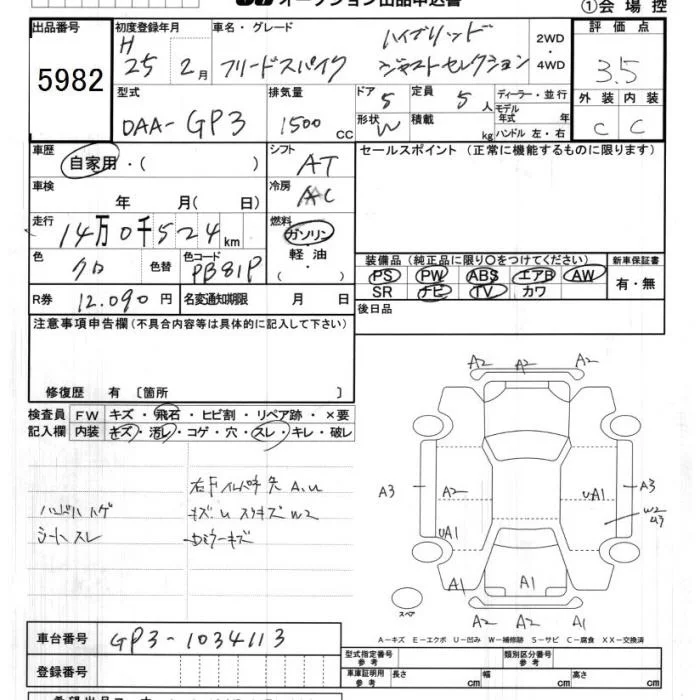 オークション出品申込書
①会場控
出品番号 5982
初度登録年月 H 25 2月
車名・グレード ハイブリッド
フリードスパイク ジャストセレクション
2WD・4WD
評価点 3.5
外装 内装
C C
型式 DAA-GP3
排気量 1500 CC
ドア 5
定員 5人
形状 W
積載 kg
ディーラー・並行
モデル年式 年
ハンドル 左・右
車歴 自家用・( )
シフト AT
セールスポイント (正常に機能するものに限ります)
車検 年 月( 日)
冷房 AC
走行 14万0千524km
燃料 ガソリン・軽油・( )
色 クロ
色替
色コード PB81P
装備品 (純正品に限り○をつけてください)
新車保証書
PS PW ABS エアB AW
SR ナビ TV カワ
有・無
R券 12,090円
名変通知期限 月 日
後日品
注意事項申告欄(不具合内容等は具体的に記入して下さい)
修復歴 有 〔箇所 〕
検査員記入欄
FW キズ・飛石・ヒビ割・リペア跡・×要
内装 キズ・汚レ・コゲ・穴・スレ・キレ・破レ
A.U
ハンドルハゲ
シートスレ
キズ.U スリキズ W2
ミラーキズ
A2 A2 A2
A3 A2 UA1 A3
UA1 W2
U3
A1 A1
A2 A2 A1
スペア
A-キズ E-エクボ U-凹み W-補修跡 S-サビ C-腐食 XX-交換済
車台番号 GP3-1034113
登録番号
型式指定番号 参考
類別区分番号 参考
車庫証明用 参考
長さ cm 幅 cm 高さ cm